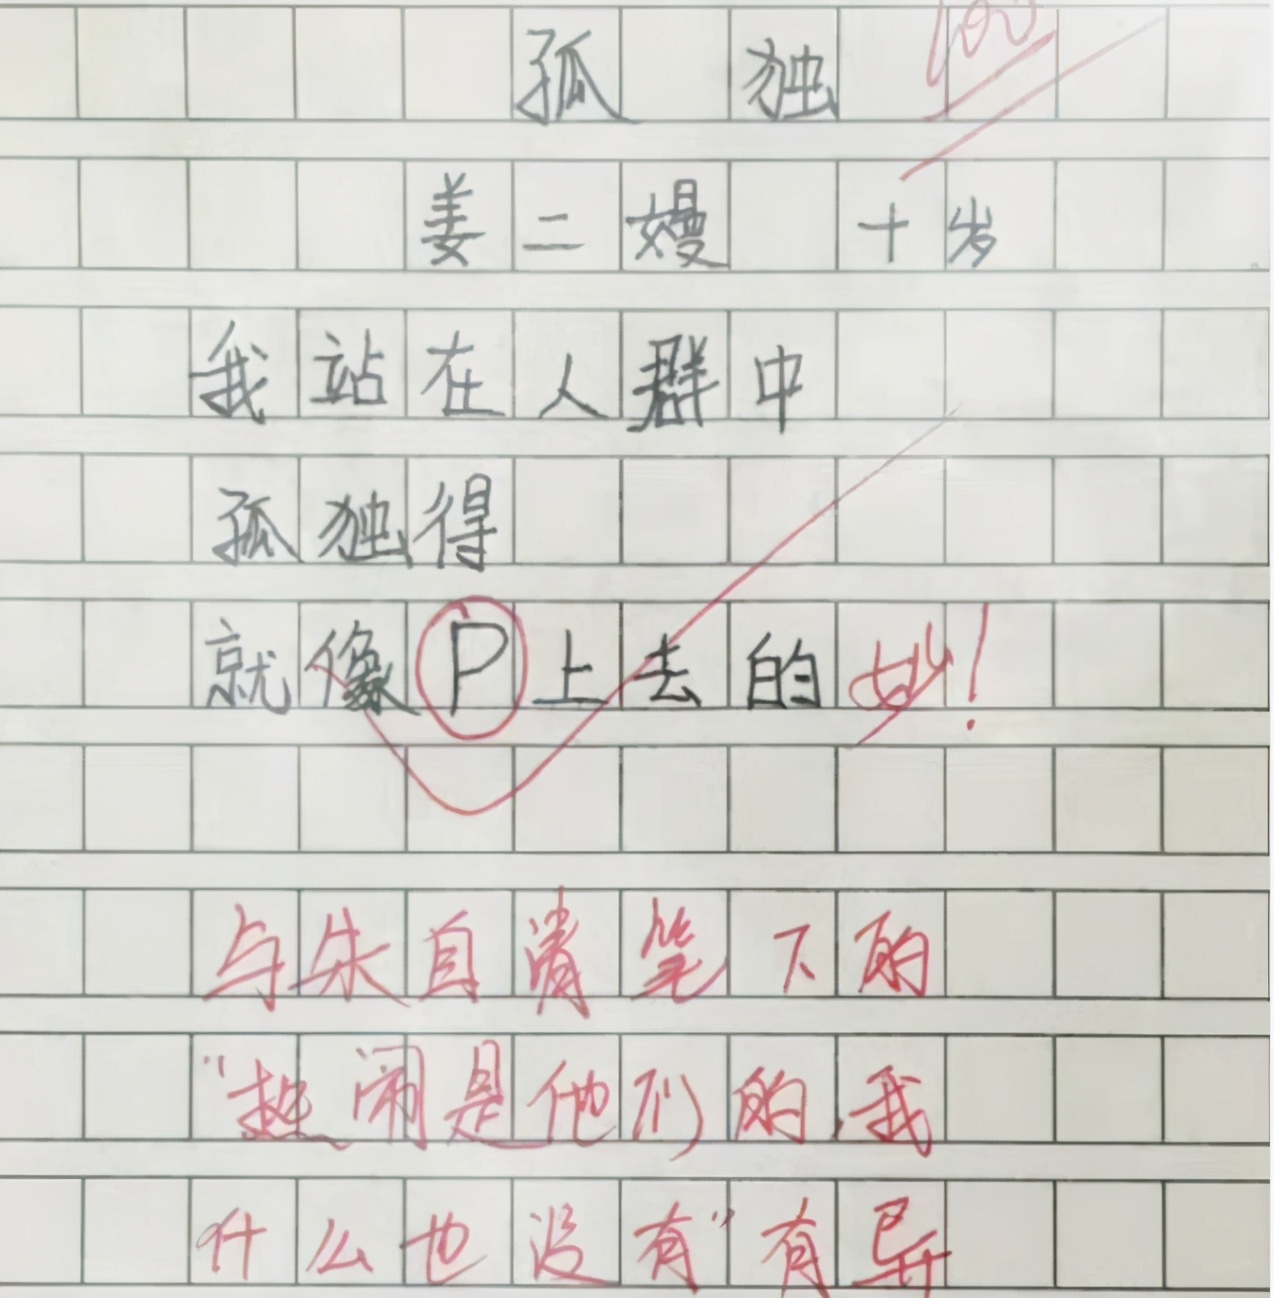 孤独 100
姜二嫚 十岁
我站在人群中
孤独得
就像P上去的 妙！
与朱自清笔下的
“热闹是他们的,我
什么也没有”有异